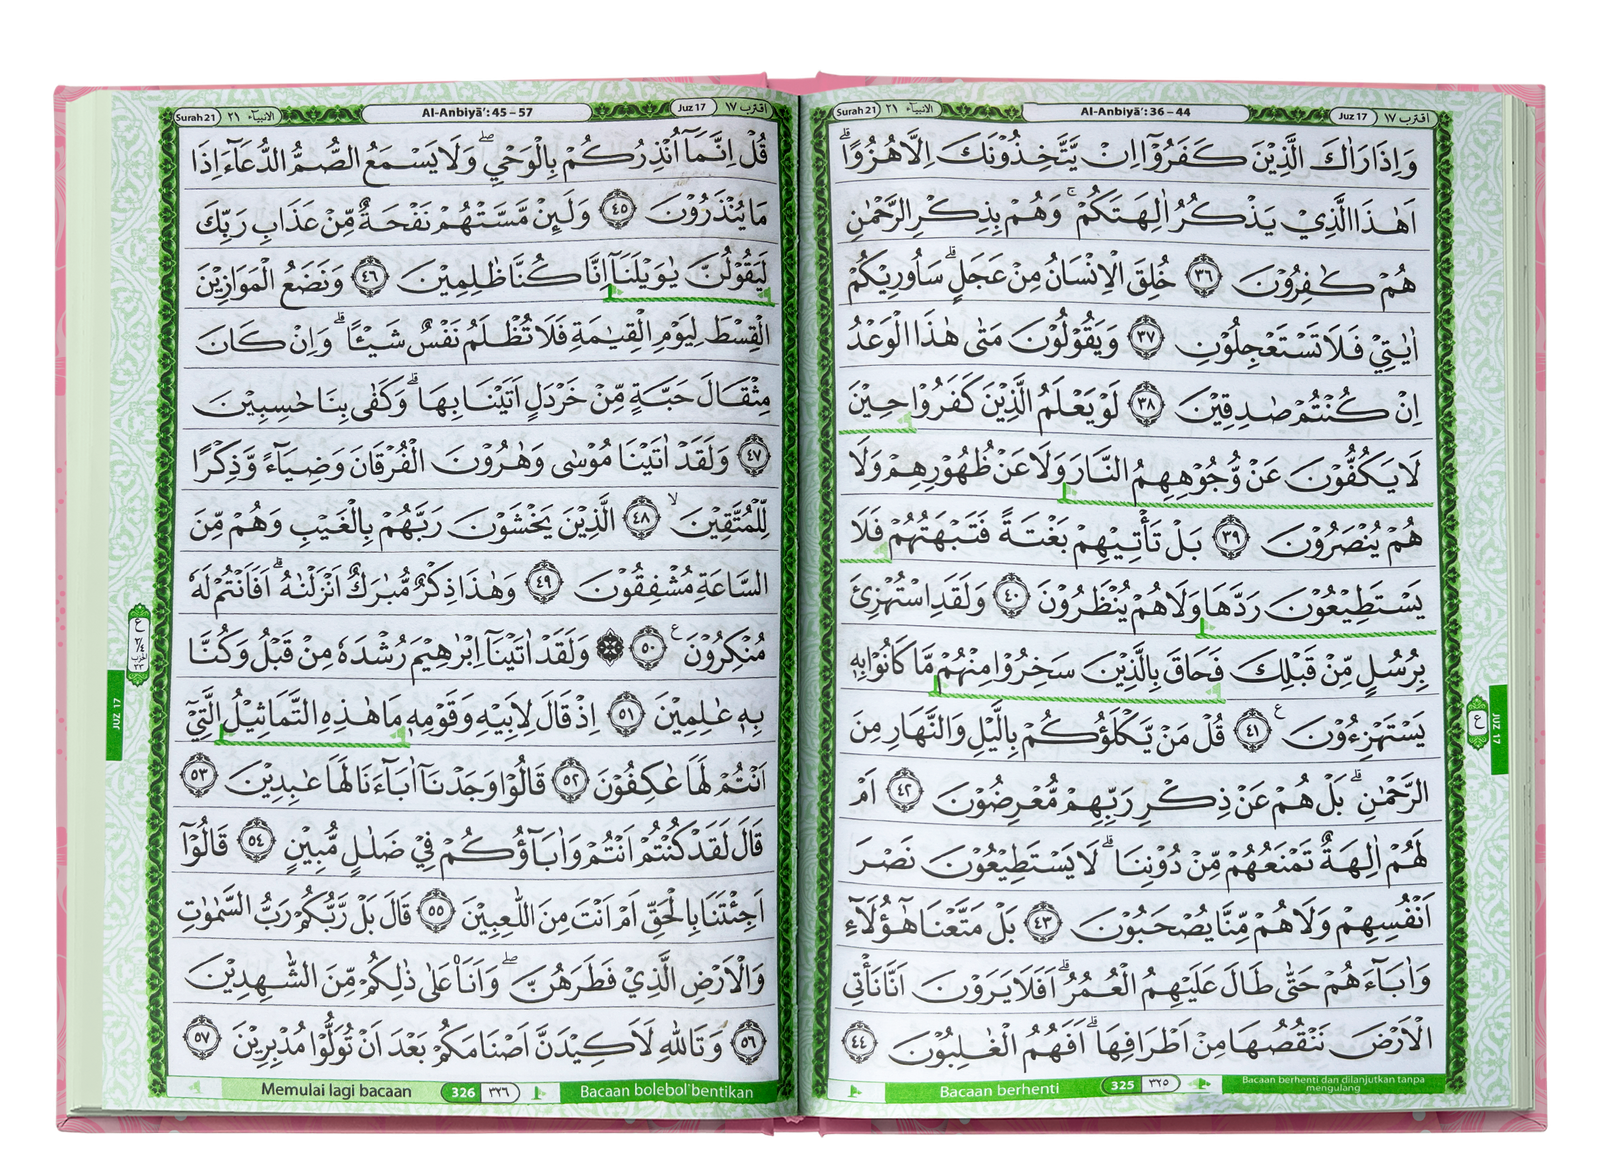 Surah 21 الانبيآء ٢١
Al-Anbiyā': 36 – 44
Juz 17 اقترب ١٧
وَاِذَا رَاٰكَ الَّذِيْنَ كَفَرُوْٓا اِنْ يَّتَّخِذُوْنَكَ اِلَّا هُزُوًاۗ
اَهٰذَا الَّذِيْ يَذْكُرُ اٰلِهَتَكُمْۚ وَهُمْ بِذِكْرِ الرَّحْمٰنِ
هُمْ كٰفِرُوْنَ ٣٦ خُلِقَ الْاِنْسَانُ مِنْ عَجَلٍۗ سَاُورِيْكُمْ
اٰيٰتِيْ فَلَا تَسْتَعْجِلُوْنِ ٣٧ وَيَقُوْلُوْنَ مَتٰى هٰذَا الْوَعْدُ
اِنْ كُنْتُمْ صٰدِقِيْنَ ٣٨ لَوْ يَعْلَمُ الَّذِيْنَ كَفَرُوْا حِيْنَ
لَا يَكُفُّوْنَ عَنْ وُّجُوْهِهِمُ النَّارَ وَلَا عَنْ ظُهُوْرِهِمْ وَلَا
هُمْ يُنْصَرُوْنَ ٣٩ بَلْ تَأْتِيْهِمْ بَغْتَةً فَتَبْهَتُهُمْ فَلَا
يَسْتَطِيْعُوْنَ رَدَّهَا وَلَا هُمْ يُنْظَرُوْنَ ٤٠ وَلَقَدِ اسْتُهْزِئَ
بِرُسُلٍ مِّنْ قَبْلِكَ فَحَاقَ بِالَّذِيْنَ سَخِرُوْا مِنْهُمْ مَّا كَانُوْا بِهٖ
يَسْتَهْزِءُوْنَ ٤١ ع قُلْ مَنْ يَّكْلَؤُكُمْ بِالَّيْلِ وَالنَّهَارِ مِنَ
الرَّحْمٰنِۗ بَلْ هُمْ عَنْ ذِكْرِ رَبِّهِمْ مُّعْرِضُوْنَ ٤٢ اَمْ
لَهُمْ اٰلِهَةٌ تَمْنَعُهُمْ مِّنْ دُوْنِنَاۗ لَا يَسْتَطِيْعُوْنَ نَصْرَ
اَنْفُسِهِمْ وَلَا هُمْ مِّنَّا يُصْحَبُوْنَ ٤٣ بَلْ مَتَّعْنَا هٰٓؤُلَاۤءِ
وَاٰبَاۤءَهُمْ حَتّٰى طَالَ عَلَيْهِمُ الْعُمُرُۗ اَفَلَا يَرَوْنَ اَنَّا نَأْتِى
الْاَرْضَ نَنْقُصُهَا مِنْ اَطْرَافِهَاۗ اَفَهُمُ الْغٰلِبُوْنَ ٤٤
Bacaan berhenti
325 ٣٢٥
Bacaan berhenti dan dilanjutkan tanpa
mengulang
ع
JUZ 17
Surah 21 الانبيآء ٢١
Al-Anbiyā': 45 – 57
Juz 17 اقترب ١٧
قُلْ اِنَّمَآ اُنْذِرُكُمْ بِالْوَحْيِۖ وَلَا يَسْمَعُ الصُّمُّ الدُّعَاۤءَ اِذَا
مَا يُنْذَرُوْنَ ٤٥ وَلَىِٕنْ مَّسَّتْهُمْ نَفْحَةٌ مِّنْ عَذَابِ رَبِّكَ
لَيَقُوْلُنَّ يٰوَيْلَنَآ اِنَّا كُنَّا ظٰلِمِيْنَ ٤٦ وَنَضَعُ الْمَوَازِيْنَ
الْقِسْطَ لِيَوْمِ الْقِيٰمَةِ فَلَا تُظْلَمُ نَفْسٌ شَيْـًٔاۗ وَاِنْ كَانَ
مِثْقَالَ حَبَّةٍ مِّنْ خَرْدَلٍ اَتَيْنَا بِهَاۗ وَكَفٰى بِنَا حٰسِبِيْنَ
٤٧ وَلَقَدْ اٰتَيْنَا مُوْسٰى وَهٰرُوْنَ الْفُرْقَانَ وَضِيَاۤءً وَّذِكْرًا
لِّلْمُتَّقِيْنَۙ ٤٨ الَّذِيْنَ يَخْشَوْنَ رَبَّهُمْ بِالْغَيْبِ وَهُمْ مِّنَ
السَّاعَةِ مُشْفِقُوْنَ ٤٩ وَهٰذَا ذِكْرٌ مُّبٰرَكٌ اَنْزَلْنٰهُۗ اَفَاَنْتُمْ لَهٗ
مُنْكِرُوْنَ ع ٥٠ ۞ وَلَقَدْ اٰتَيْنَآ اِبْرٰهِيْمَ رُشْدَهٗ مِنْ قَبْلُ وَكُنَّا
بِهٖ عٰلِمِيْنَ ٥١ اِذْ قَالَ لِاَبِيْهِ وَقَوْمِهٖ مَا هٰذِهِ التَّمَاثِيْلُ الَّتِيْٓ
اَنْتُمْ لَهَا عٰكِفُوْنَ ٥٢ قَالُوْا وَجَدْنَآ اٰبَاۤءَنَا لَهَا عٰبِدِيْنَ ٥٣
قَالَ لَقَدْ كُنْتُمْ اَنْتُمْ وَاٰبَاۤؤُكُمْ فِيْ ضَلٰلٍ مُّبِيْنٍ ٥٤ قَالُوْٓا
اَجِئْتَنَا بِالْحَقِّ اَمْ اَنْتَ مِنَ اللّٰعِبِيْنَ ٥٥ قَالَ بَلْ رَّبُّكُمْ رَبُّ السَّمٰوٰتِ
وَالْاَرْضِ الَّذِيْ فَطَرَهُنَّۖ وَاَنَا۠ عَلٰى ذٰلِكُمْ مِّنَ الشّٰهِدِيْنَ
٥٦ وَتَاللّٰهِ لَاَكِيْدَنَّ اَصْنَامَكُمْ بَعْدَ اَنْ تُوَلُّوْا مُدْبِرِيْنَ ٥٧
Memulai lagi bacaan
326 ٣٢٦
Bacaan bolebol bentikan
JUZ 17